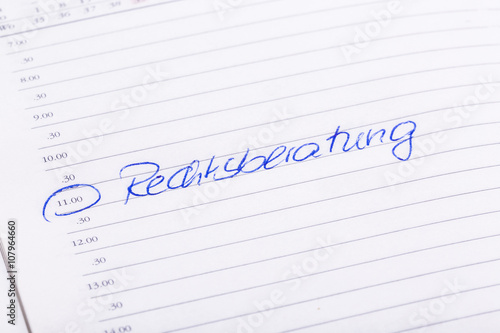 7.00
.30
8.00
.30
9.00
.30
10.00
.30
11.00 Rechtsberatung
.30
12.00
.30
13.00
.30
14.00
Adobe Stock | #107964660